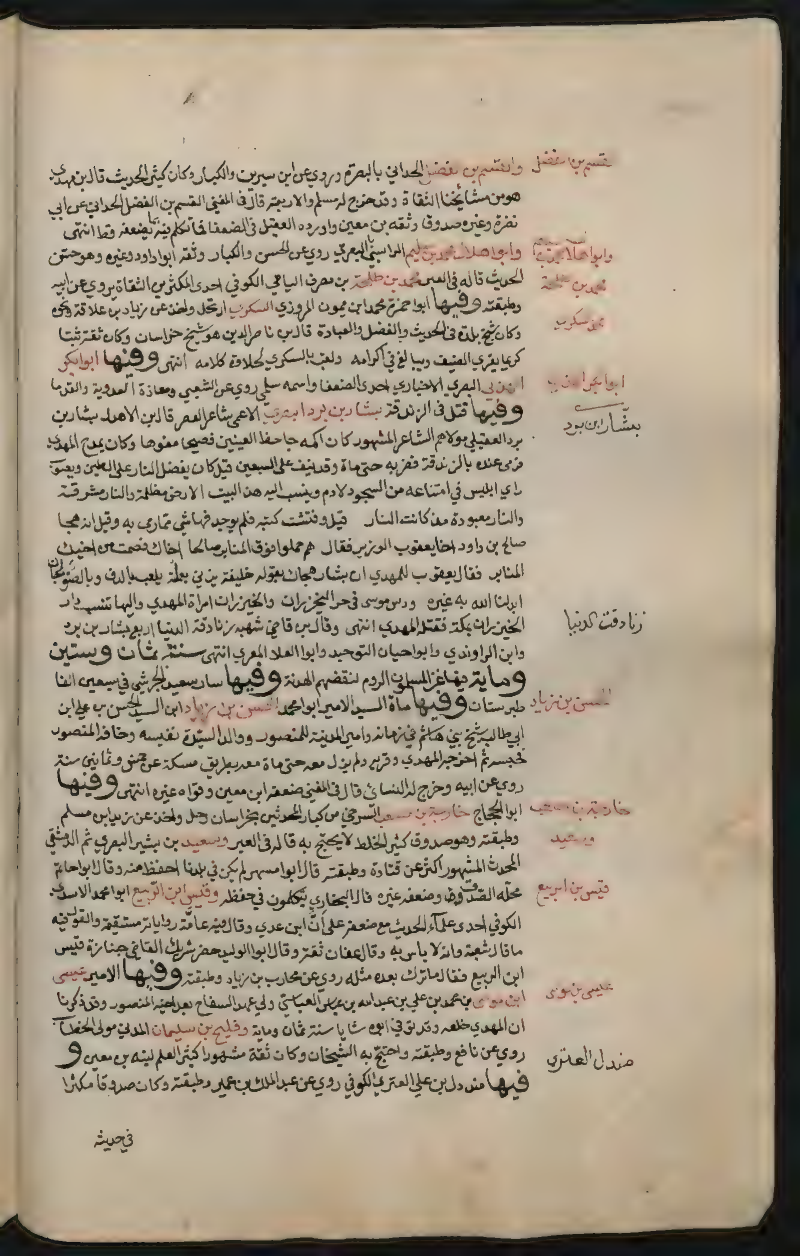 والقسم بن الفضل الحداني بالبصرة وروي عن ابن سيرين والكبار وكان كيثر الحديث قال بن مهدي
هو من مشائخنا الثقاة وقد خرج له مسلم والاربعة قال في المغني القسم بن الفضل الحداني عن ابي
نضرة وغيره صدوق وثقه بن معين واورده العقيلي في الضعفا فما تكلم فيه بما يضعفه قط انتهى
وابو هلال محمد بن سليم الراسبي البصري روي عن الحسن والكبار وثقه ابو داود وغيره وهو حسن
الحديث قاله في العبر محمد بن طلحة بن مصرف اليامي الكوفي احدى المكثرين الثقاة يروي عن ابيه
وطبقته وفيها ابو حمزة محمد ابن ميمون المروزي السكري ارتحل واخذ عن زياد بن علاقة ونحوه
وكان شيخ بلده في الحديث والفضل والعبادة قال بن ناصر الدين هو شيخ خراسان وكان ثقة ثبتا
كريما يقري الضيف ويبالغ في اكرامه ولقب بالسكري لحلاوة كلامه انتهى وفيها ابو بكر
الهذلي البصري الاخباري احدى الضعفا واسمه سلمي روي عن الشعبي ومعاذة العدوية والقدما
وفيها قتل في الزندقة بشار بن برد البصري الاعمي شاعر العصر قال بن الاهدل بشار بن
برد العقيلي مولاهم الشاعر المشهور كان اكمه جاحظ العينين فصيحا مفوها وكان يمدح المهدي
فرمي عنده بالزندقة فضربه حتى ماة وقد نيف على السبعين قيل كان يفضل النار على الطين ويصوب
راي ابليس في امتناعه من السجود لادم وينسب اليه هذ البيت الارض مظلمة والنار مشرقة
والنار معبودة مذ كانت النار قيل وفتشت كتبه فلم يوجد فيها شي مما رمى به وقيل انه هجا
صالح بن داود اخا يعقوب الوزير فقال هم حملوا فوق المنابر صالحا اخاك فضجت من اخيك
المنابر فقال يعقوب للمهدي ان بشار هجاك بقوله خليفة يزني بعماته يلعب بالدف وبالصولجان
ابدلنا الله به غيره ودس موسى في حر الخيزران والخيزران امراة المهدي واليها تنسب دار
الخيزران بمكة فقتله المهدي انتهى وقال بن قاضي شهبه زنادقة الدنيا اربع بشار بن برد
وابن الراوندي وابو حيان التوحيد وابو العلا المعري انتهى سنة ثمان وستين
وماية فيها غزا المسلمون الروم لنقضهم الهدنة وفيها سار سعيد الجرشي في سبعين الفا
طبرستان وفيها ماة السيد الامير ابو محمد الحسن بن زياد ابن السيد الحسن بن علي ابن
ابي طالب شيخ بني هاشم في زمانه وامير المدينة للمنصور ووالد السيدة نفيسه وخافه المنصور
فحبسه ثم اخرجه المهدي وقربه ولم يزل معه حتى ماة معه بطريق مسكة عن خمس وثمانين سنة
روي عن ابيه وخرج له النسائ قال في المغني ضعفه ابن معين وقواه غيره انتهى وفيها
ابو الحجاج خارجة بن مصعب السرخسي من كبار المحدثين بخراسان رحل واخذ عن زيد ابن مسلم
وطبقته وهو صدوق كثير الخلط لا يحتج به قاله في العبر وسعيد بن بشير البصري ثم الدمشقي
المحدث المشهور اكثر عن قتادة وطبقته قال ابو مسهر لم يكن في بلدنا احفظ منه وقال ابو حاتم
محله الصدق وضعفه غيره قال البخاري يتكلمون في حفظه وقيس ابن الربيع ابو محمد الاسدي
الكوفي احدى علماء الحديث مع ضعفه على ان ابن عدي وقال فيه عامة رواياته مستقيمة والقول فيه
ما قال شعبة وانه لا باس به وقال عفان ثقة وقال ابو الوليد حضر شريك القاضي جنازة قيس
ابن الربيع فقال ما ترك بعده مثله روي عن محارب بن زياد وطبقته وفيها الامير عيسى
ابن موسى بن محمد بن علي بن عبدالله بن عباس العباسي ولي عهد السفاح بعد اخيه المنصور وقد ذكرنا
ان المهدي خلعه وقد توفي ابوه شابا سنة ثمان وماية وفليح بن سليمان المدني مولى الخطاب
روي عن نافع وطبقته واحتج به الشيخان وكان ثقة مشهورا كيثر العلم لينه بن معين و
فيها مندل بن علي العنزي الكوفي روي عن عبد الملك بن عمير وطبقته وكان صدوقا مكثرا
في حديثه
قسم بن الفضل
وابو هلال محمد بن سليم
محمد بن طلحة
محمد سكري
ابو بكر الهذلي
بشار ابن برد
زنادقت الدنيا
الحسن بن زياد
خارجة بن مصعب
وسعيد
قيس بن الربيع
عيسى بن موسى
مندل العنزي